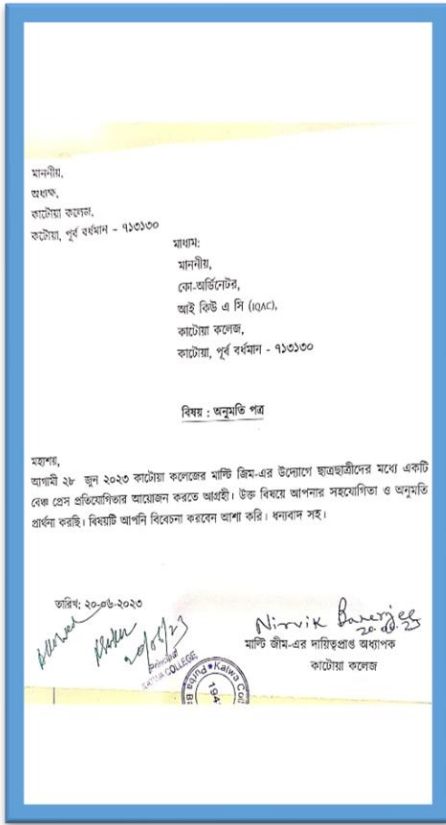 মাননীয়,
অধ্যক্ষ,
কাটোয়া কলেজ,
কাটোয়া, পূর্ব বর্ধমান - ৭১৩১৩০
মাধ্যম:
মাননীয়,
কো-অর্ডিনেটর,
আই কিউ এ সি (IQAC),
কাটোয়া কলেজ,
কাটোয়া, পূর্ব বর্ধমান - ৭১৩১৩০
বিষয় : অনুমতি পত্র
মহাশয়,
আগামী ২৮ জুন ২০২৩ কাটোয়া কলেজের মাল্টি জিম-এর উদ্যোগে ছাত্রছাত্রীদের মধ্যে একটি
বেঞ্চ প্রেস প্রতিযোগিতার আয়োজন করতে আগ্রহী। উক্ত বিষয়ে আপনার সহযোগিতা ও অনুমতি
প্রার্থনা করছি। বিষয়টি আপনি বিবেচনা করবেন আশা করি। ধন্যবাদ সহ।
তারিখ: ২০-০৬-২০২৩
Allowed
20/06/23
Principal
KATWA COLLEGE
Nirvik Banerjee
20.06.23
মাল্টি জীম-এর দায়িত্বপ্রাপ্ত অধ্যাপক
কাটোয়া কলেজ
Purba Ba
Katwa Co
194